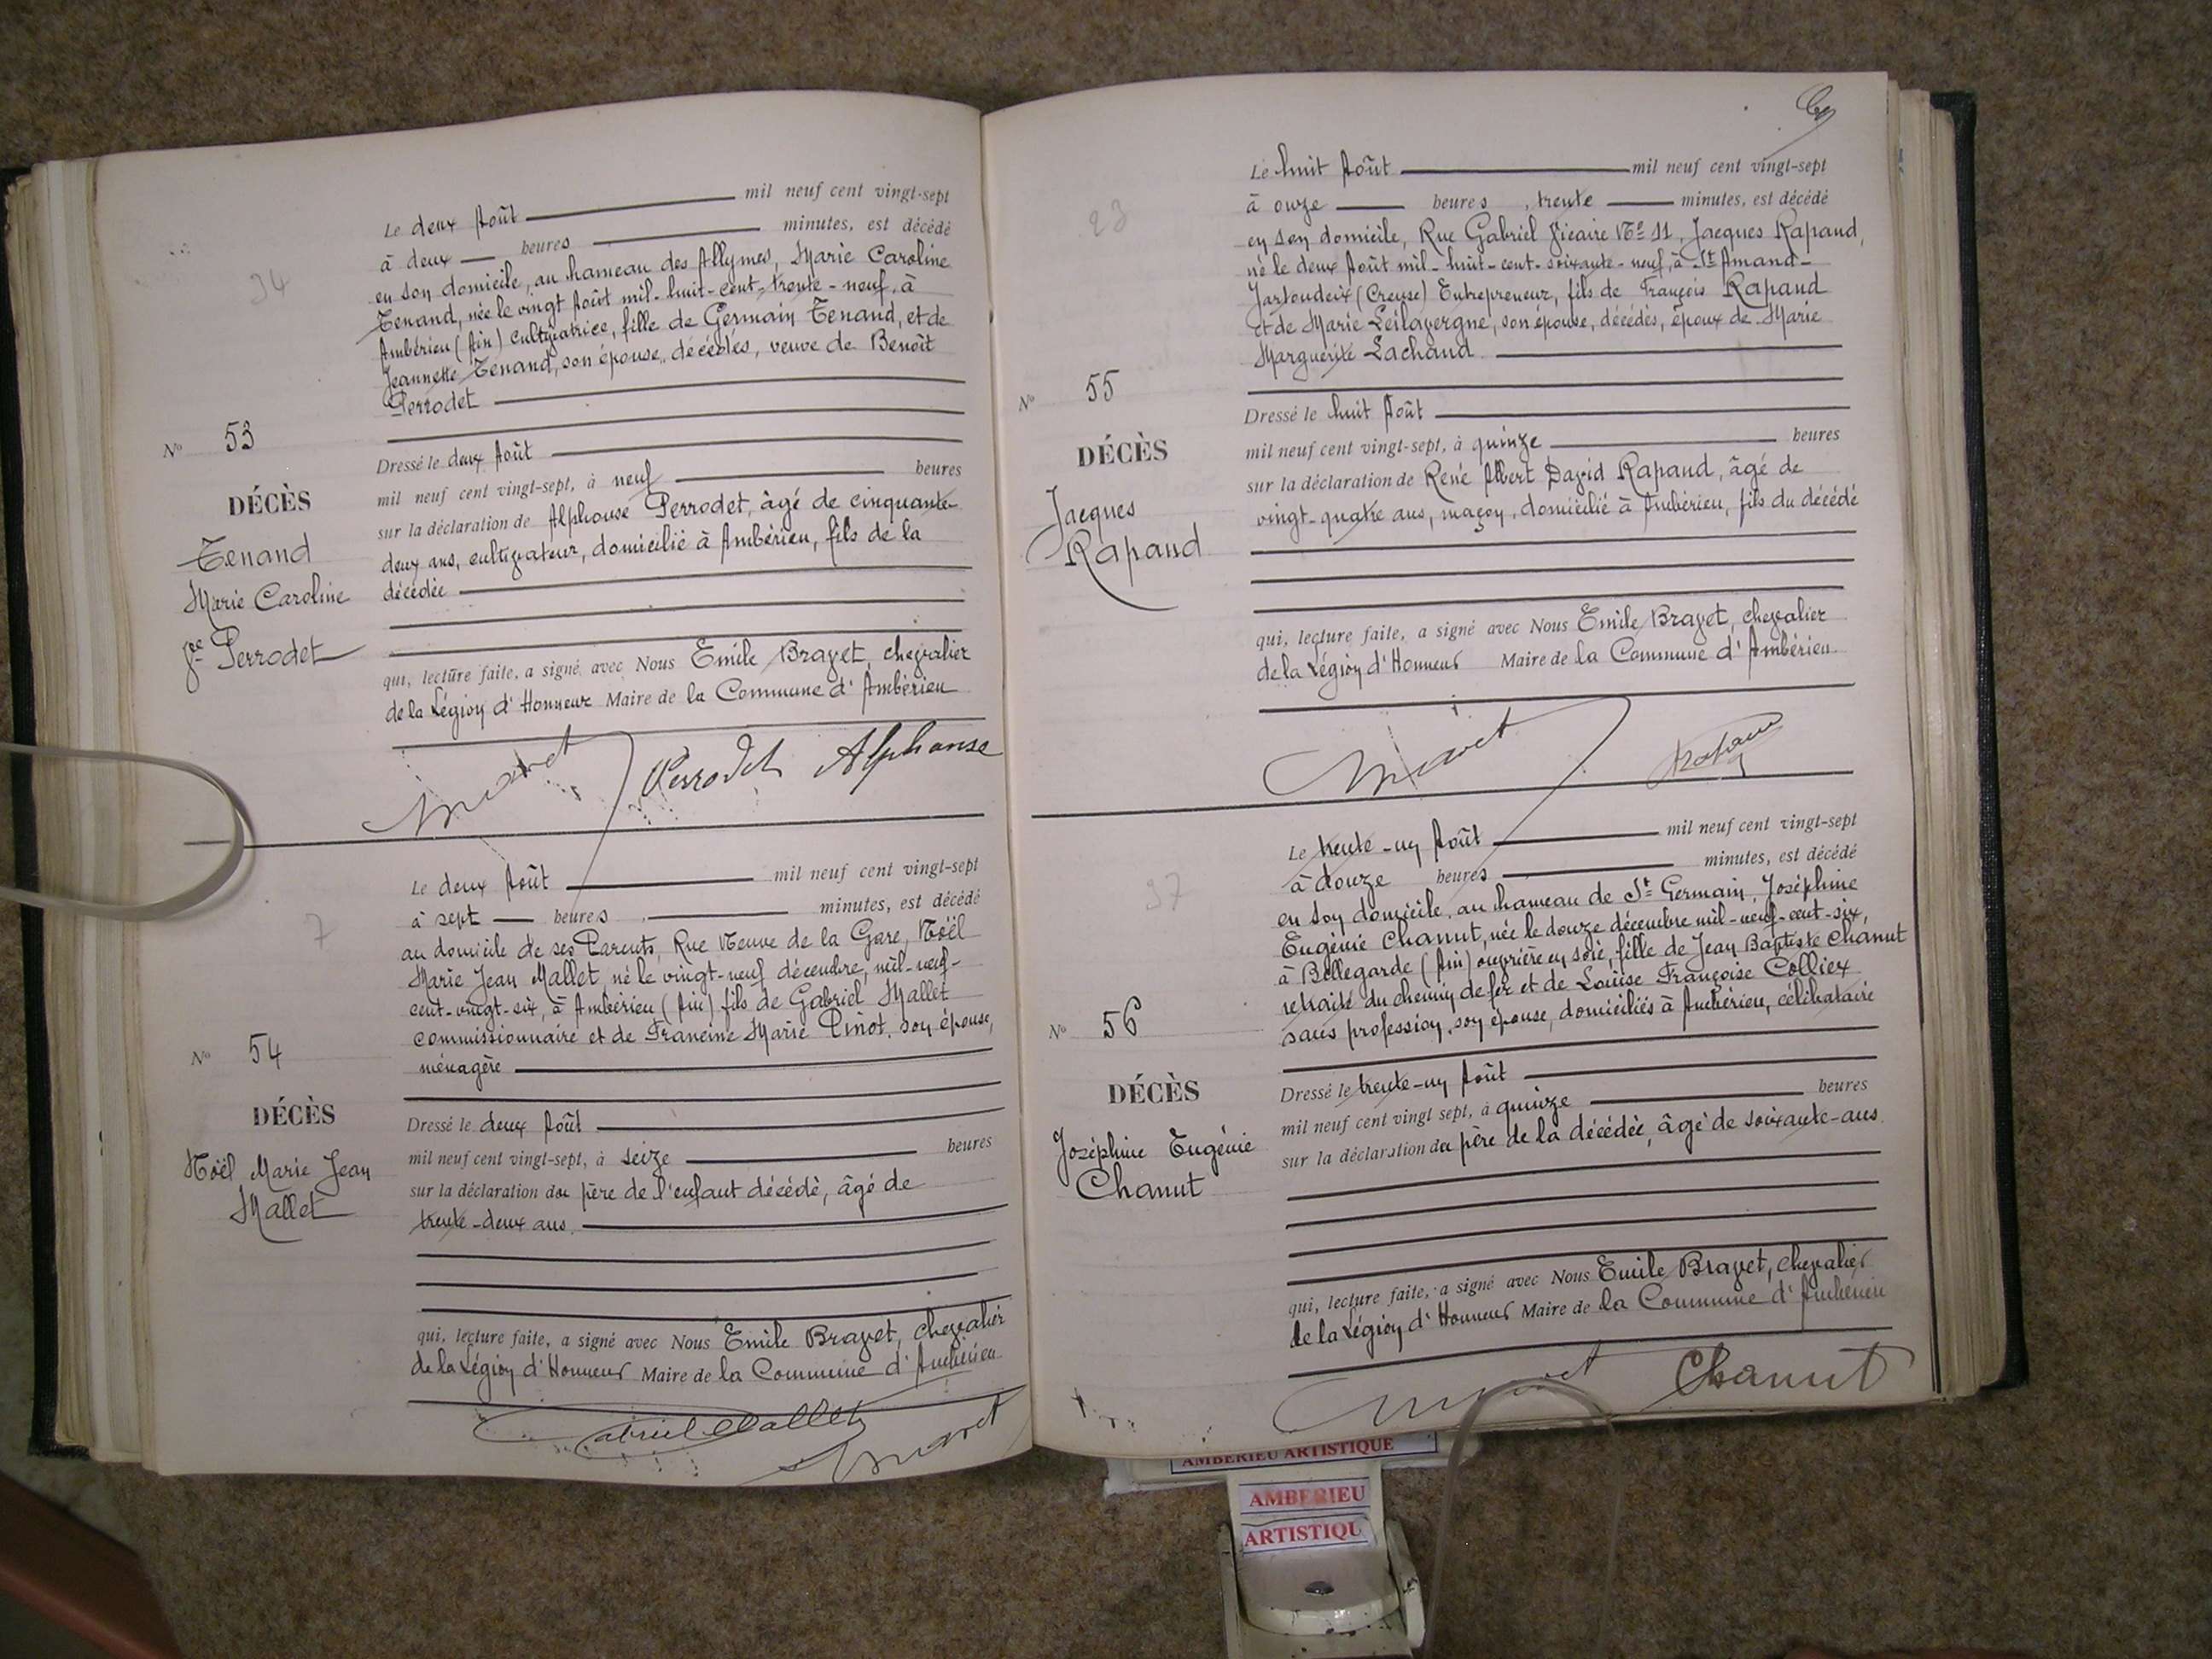 34
Le deux Août mil neuf cent vingt-sept
à deux heures minutes, est décédé
en son domicile, au hameau des Allymes, Marie Caroline
Tenand, née le vingt Août mil-huit-cent-trente-neuf, à
Ambérieu (Ain) cultivatrice, fille de Germain Tenand, et de
Jeannette Tenand, son épouse, décédés, veuve de Benoît
Perrodet
Nº 53
DÉCÈS
Tenand
Marie Caroline
Vve Perrodet
Dressé le deux Août
mil neuf cent vingt-sept, à neuf heures
sur la déclaration de Alphonse Perrodet, âgé de cinquante-
deux ans, cultivateur, domicilié à Ambérieu, fils de la
décédée
qui, lecture faite, a signé avec Nous Emile Bravet, chevalier
de la Légion d'Honneur Maire de la Commune d'Ambérieu
Bravet Perrodet Alphonse
7
Le deux Août mil neuf cent vingt-sept
à sept heures minutes, est décédé
au domicile de ses Parents, Rue Neuve de la Gare, Noël
Marie Jean Mallet, né le vingt-neuf décembre, mil-neuf-
cent-vingt-six, à Ambérieu (Ain) fils de Gabriel Mallet
commissionnaire et de Francine Marie Pinot, son épouse,
ménagère
Nº 54
DÉCÈS
Noël Marie Jean
Mallet
Dressé le deux Août
mil neuf cent vingt-sept, à seize heures
sur la déclaration du père de l'enfant décédé, âgé de
trente-deux ans
qui, lecture faite, a signé avec Nous Emile Bravet, chevalier
de la Légion d'Honneur Maire de la Commune d'Ambérieu
Gabriel Mallet
Bravet
23
Le huit Août mil neuf cent vingt-sept
à onze heures, trente minutes, est décédé
en son domicile, Rue Gabriel Vicaire Nº 11, Jacques Rapaud,
né le deux Août mil-huit-cent-soixante-neuf, à St Amand-
Jartoudeix (Creuse) Entrepreneur, fils de François Rapaud
et de Marie Leilavergne, son épouse, décédés, époux de Marie
Marguerite Lachaud
Nº 55
DÉCÈS
Jacques
Rapaud
Dressé le huit Août
mil neuf cent vingt-sept, à quinze heures
sur la déclaration de René Albert David Rapaud, âgé de
vingt-quatre ans, maçon, domicilié à Ambérieu, fils du décédé
qui, lecture faite, a signé avec Nous Emile Bravet, chevalier
de la Légion d'Honneur Maire de la Commune d'Ambérieu
Bravet Rapaud
37
Le trente-un Août mil neuf cent vingt-sept
à douze heures minutes, est décédé
en son domicile, au hameau de St Germain, Joséphine
Eugénie Chanut, née le douze décembre mil-neuf-cent-six,
à Bellegarde (Ain) ouvrière en soie, fille de Jean Baptiste Chanut
retraité du chemin de fer et de Louise Françoise Colliex
sans profession, son épouse, domiciliés à Ambérieu, célibataire
Nº 56
DÉCÈS
Joséphine Eugénie
Chanut
Dressé le trente-un Août
mil neuf cent vingt sept, à quinze heures
sur la déclaration du père de la décédée, âgé de soixante-ans
qui, lecture faite, a signé avec Nous Emile Bravet, chevalier
de la Légion d'Honneur Maire de la Commune d'Ambérieu
Bravet Chanut
AMBERIEU ARTISTIQUE
AMBERIEU
ARTISTIQU